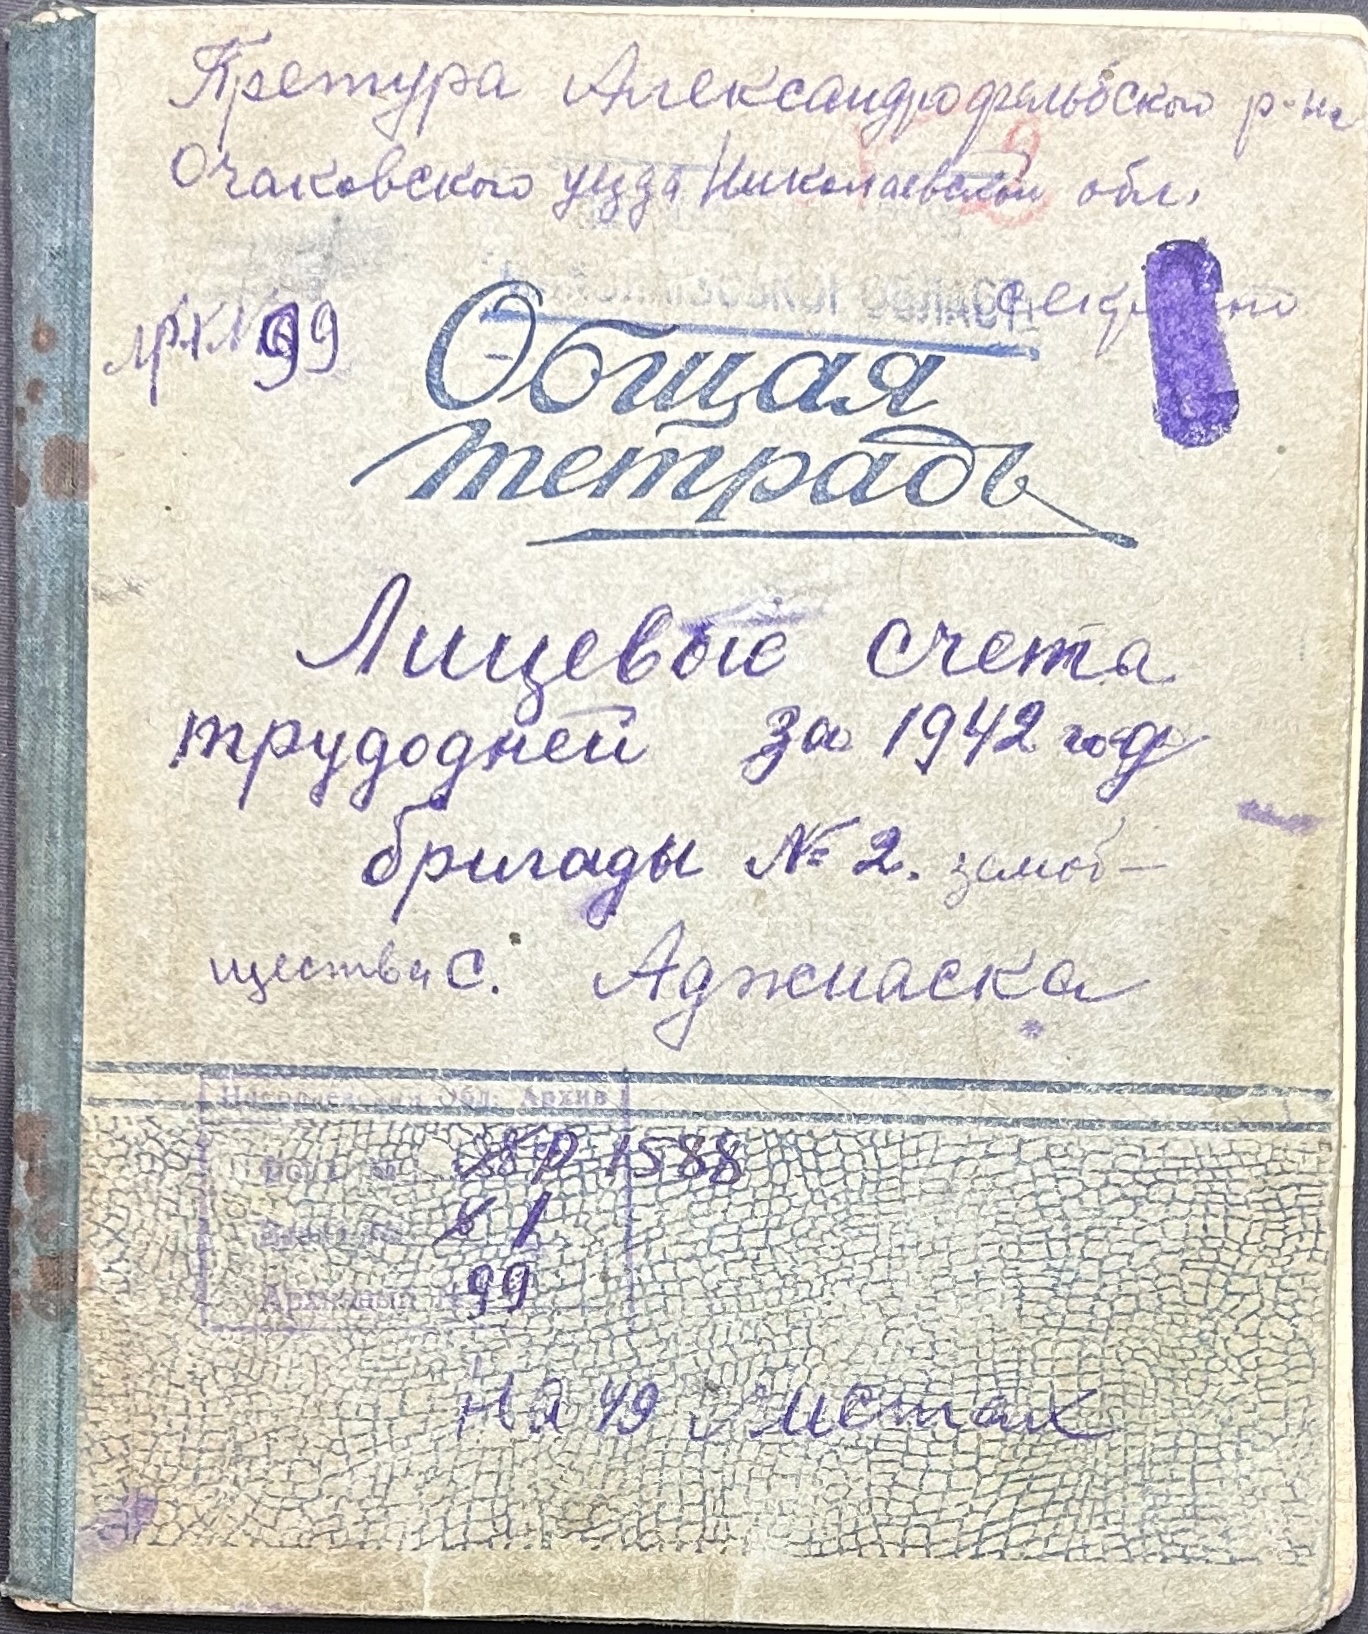 Претура Александрфельбского р-на
Очаковского уезда Николаевской обл.
секретно
99
Общая
тетрадь
Лицевые счета
трудодней за 1942 год
бригады № 2. земоб-
щества с. Аджиаска
Николаевский Обл. Архив
Фонд № Р 1588
1
Архивный № 99
На 49 листах